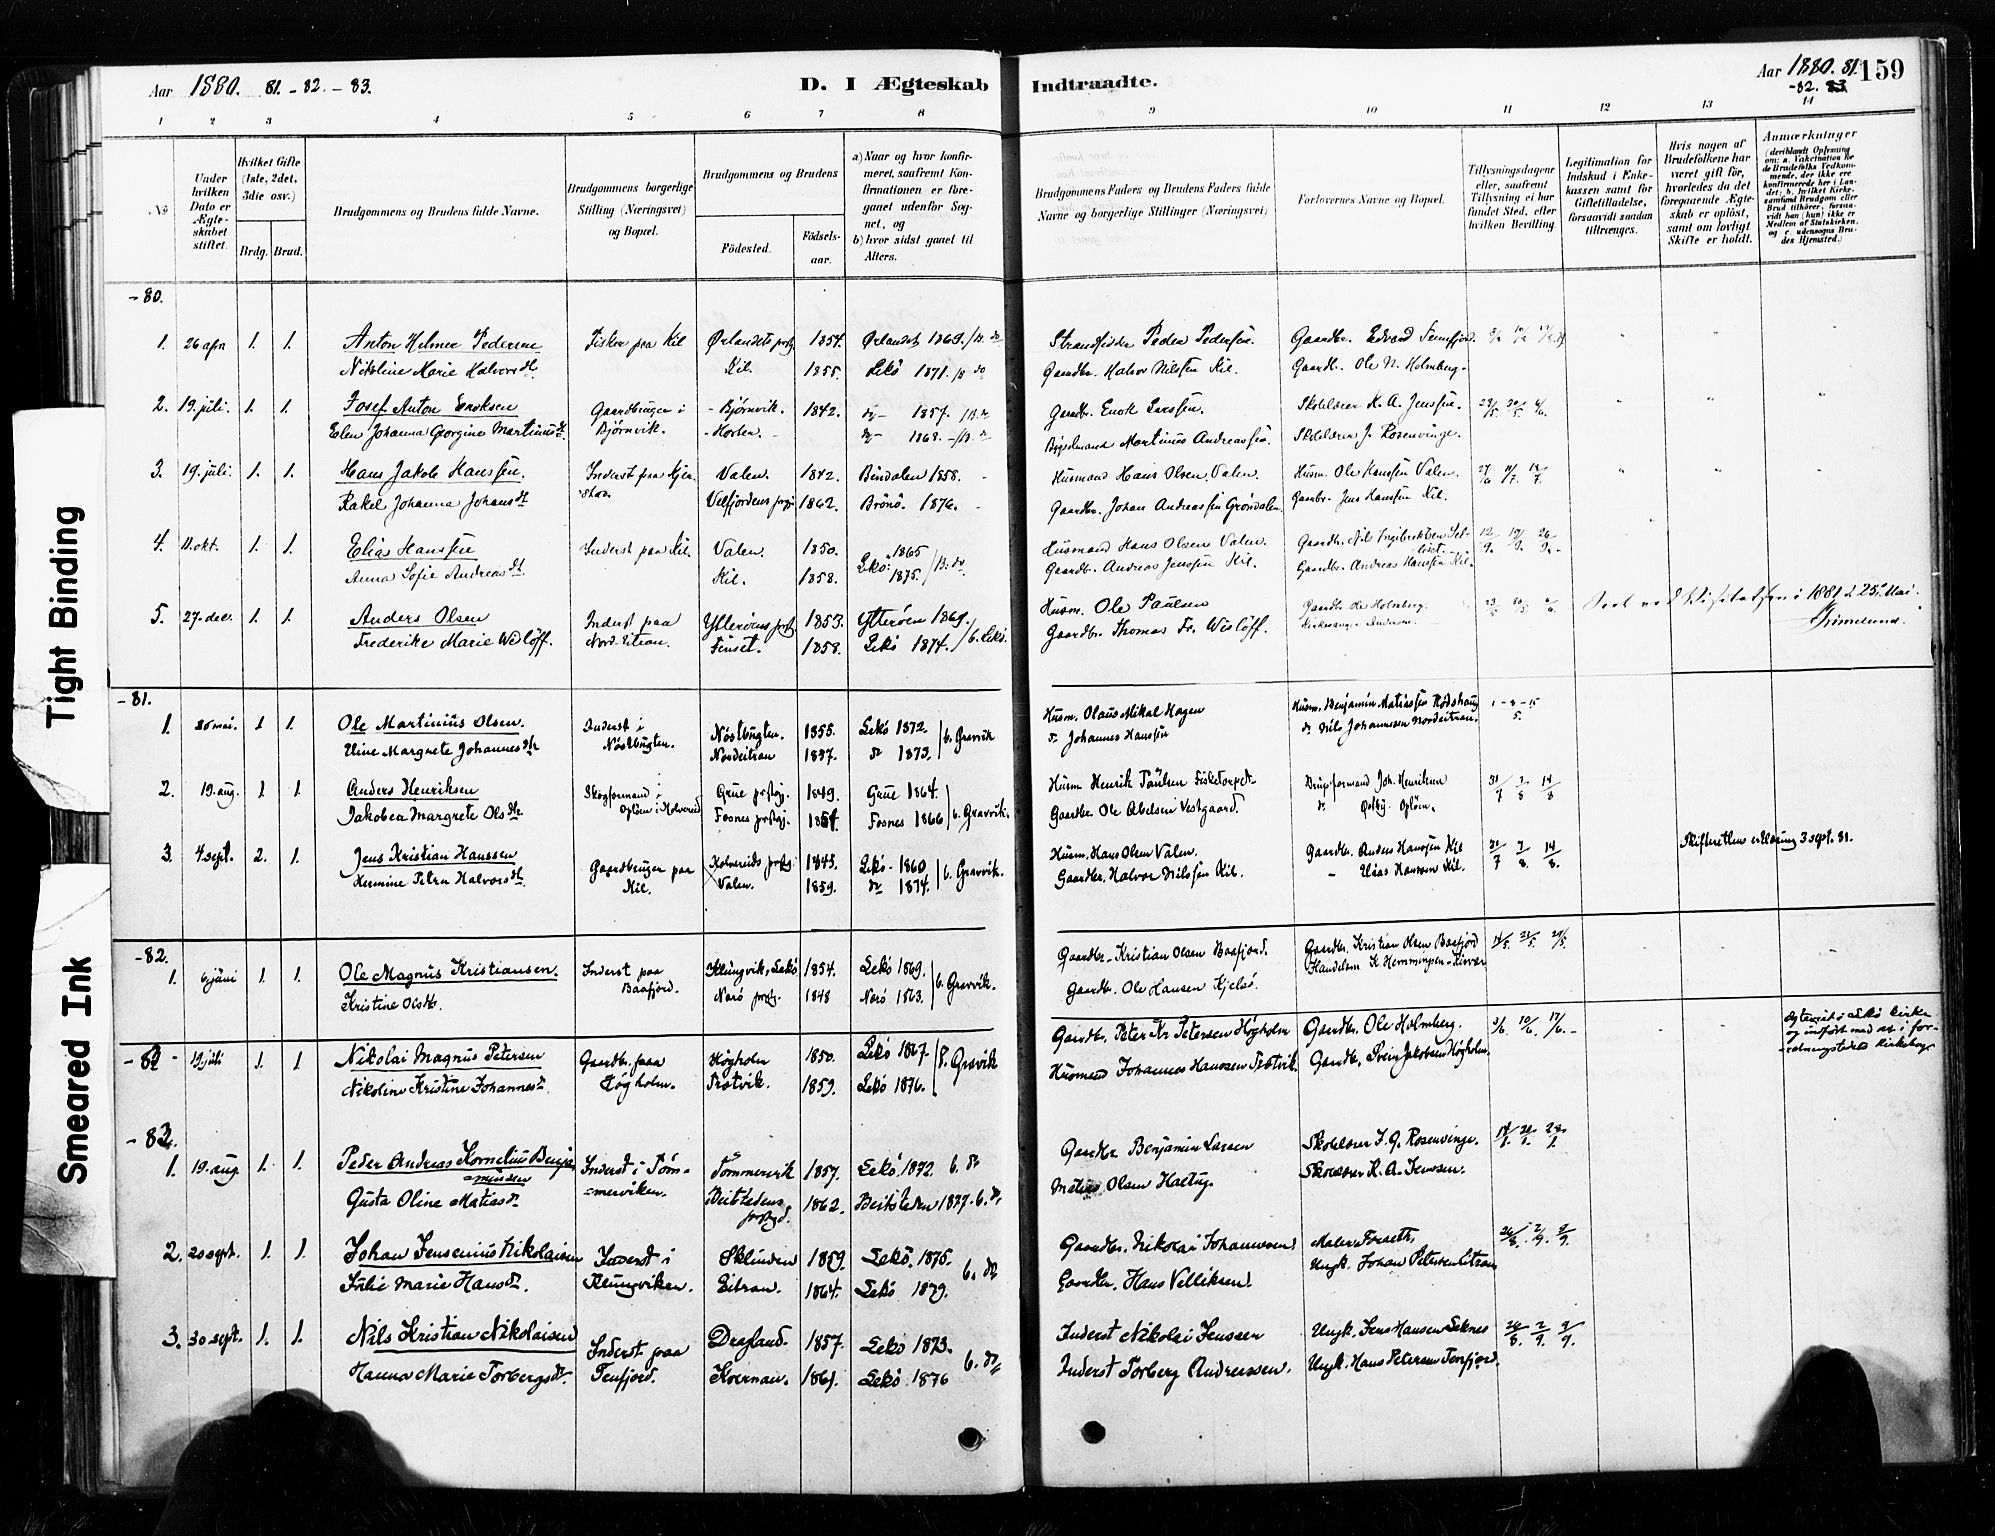 Aar 1880. 81. - 82. - 83.
D. I Ægteskab Indtraadte.
Aar 1880. 81.
-82. 83
159
1 2 3 4 5 6 7 8 9 10 11 12 13 14
No
Under hvilken Dato er Ægteskabet stiftet.
Hvilket Gifte (1ste, 2det, 3die osv.)
Brdg. Brud.
Brudgommens og Brudens fulde Navne.
Brudgommens borgerlige Stilling (Næringsvei) og Bopæl.
Brudgommens og Brudens
Fødested.
Fødselsaar.
a) Naar og hvor konfirmeret, saafremt Konfirmationen er foregaaet udenfor Sognet, og
b) hvor sidst gaaet til Alters.
Brudgommens Faders og Brudens Faders fulde Navne og borgerlige Stillinger (Næringsvei)
Forlovernes Navne og Bopæl.
Tillysningsdagene eller, saafremt Tillysning ei har fundet Sted, efter hvilken Bevilling.
Legitimation for Indskud i Enkekassen samt for Giftetilladelse, forsaavidt saadan tiltrænges.
Hvis nogen af Brudefolkene har været gift før, hvorledes da det foregaaende Ægteskab er opløst, samt om lovligt Skifte er holdt.
Anmærkninger
-80.
1. 26 apr 1. 1. Anton Helmer Pedersen Fisker paa Kil Ørlandets prstg. 1854. Ørlandet 1869. Strandsidder Peder Pedersen. Gaardbr. Edvard Tennfjord.
Nikoline Marie Halvorsdtr Kil. 1855. Lekø 1871. Gaardbr. Halvor Nilssen Kil. Gaardb. Ole N. Holmberg.
2. 19. juli. 1. 1. Josef Anton Enoksen Gaardbruger i Bjørnvik. Bjørnvik. 1842. do 1857. Gaardbr. Enok Larssen. Skolelærer K. A. Jenssen. 23/5 30/5 6/6
Elen Johanna Georgine Martinusdtr. Horten. do 1868. Martinus Andreassen. Skolelærer J. Rosenvinge.
3. 19. juli. 1. 1. Hans Jakob Hanssen Inderst paa Valen. 1842. Bindalen 1858. Husmand Hans Olsen Valen. Husm. Ole Hanssen Valen. 27/6 4/7 18/7
Rakel Johanna Johansdtr Velfjordens prstg. 1862. Brönö. 1876. Gaardbr. Johan Andreassen Grøndalen. Gaardbr. Jens Hanssen Kil.
4. 11. okt. 1. 1. Elias Hanssen Inderst paa Kil. Valen. 1850. Lekø: 1865 Husmand Hans Olsen Valen. Gaardbr. Nils Ingebrektsen 12/9. 19/9. 26/9.
Anna Sofie Andreasdtr. Kil. 1858. 1875. Gaardb. Andreas Jenssen Kil. Gaardbr. Andreas Hanssen Kil.
5. 27. dec. 1. 1. Anders Olsen Inderst paa Nord-Eitran. Ytterøens prstg. 1853. Ytterøen 1869. Husm. Ole Paulsen Gaardbr. Ole Holmberg. 23/5 30/5 6/6 Seet ved Visitatsen i 1881 d. 25de Mai.
Frederike Marie Wisløff. Finset. 1858. Lekø 1874. b. Lekø. Gaardbr. Thomas Fr. Wisløff. Grimelund.
-81.
1. 26 mai. 1 1. Ole Martinius Olsen. Inderst i Nöstbugten. Nöstbugten. 1855. Lekö 1872. b. Gravvik Husm. Olaus Mikal Hagen Husm. Benjamin Matiassen Rödshaug 1 - 8 - 15/5.
Eline Margrete Johannesdtr Nordeitran 1857. do 1873. do Johannes Hanssen do Nils Johannessen Nordeitran.
2. 19. aug. 1. 1. Anders Henriksen Skogformand i Oplöen i Kolvereid Grue prstgj. 1849. Grue 1864. b. Gravvik. Husm. Henrik Paulsen Fisketorpet. Brugsformand Joh. Henriksen 31/7 7/8 14/8
Jakobea Margrete Olsdtr Fosnes prstgj. 1851. Fosnes 1866 Gaardbr. Ole Abelsen Vestgaard. do Oplöen.
3. 4. sept. 2. 1. Jens Kristian Hanssen Gaardbruger paa Kil. Kolvereids prstg. 1845. Lekö - 1860 b. Gravvik. Husm. Hans Olsen Valen. Gaardbr. Anders Hanssen Kil 31/7 7/8. 14/8. Skifterettens erklæring 3 sept. 81.
Hermine Petra Halvorsdtr. Valen. 1859. do 1874. Gaardbr. Halvor Nilssen Kil. - Elias Hanssen Kil.
-82.
1. 6 juni 1. 1. Ole Magnus Kristiansen. Inderst paa Baafjord. Klungvik, Lekö 1854. Lekö 1869. b. Gravvik. Gaardbr. Kristian Olsen Baafjord. Gaardbr. Kristian Olsen Baafjord 14/5. 21/5. 29/5.
Kristine Olsdtr. Narö prstg. 1848 Narö 1863. Gaardbr. Ole Hansen Kjelsö. Handelsm. K. Hemmingsen - Risvær
-82 - 19. juli 1. 1 Nikolai Magnus Petersen Gaardbr. paa Høgholm. Høgholm 1850. Lekö 1867 b. Gravvik Gaardbr. Peter Kr. Petersen Høgholm Gaardbr. Ole Holmberg. 3/6. 10/6. 17/6. - Ægteviet i Lekö kirke og indført med No i forretningsstedets Kirkebog
Nikoline Kristine Johannesdtr. Trætvik. 1859. Lekö 1876. Husmand Johannes Hanssen Trætvik. Gaardbr. Svein Jakobsen Høgholm.
-83.
1. 19. aug 1. 1. Peder Andreas Kornelius Benjaminsen Inderst i Tömmerviken. Tömmervik 1857. Lekö. 1872. b. do Gaardbr. Benjamin Larsen Skolelærer J. G. Rosenvinge. 14/1. 21/1. 28/1.
Gusta Oline Matiasdtr Beitstadens prstgd. 1862. Beitstaden 1877. b. do Matias Olsen Haltug. Skolelærer K. A. Jenssen.
2. 20 sept. 1. 1. Johan Jensenius Nikolaisen Inderst i Klungviken. Sklinden 1859. Lekö. 1875. b. do Gaardbr. Nikolai Johannesen Maler Foraeth, 26/8. 2/9. 9/9.
Julie Marie Hansdtr. Eitran. 1864. Lekö 1879. Gaardbr. Hans Velliksen. Ungk. Johan Petersen Eitran
3. 30 sept. 1. 1. Nils Kristian Nikolaisen Inderst paa Tenfjord. Dragland. 1857. Lekö 1873. b. do Inderst Nikolai Jenssen Ungk. Jens Hansen Leknes 26/8. 2/9. 9/9.
Hanna Marie Torbergsdtr. Kvernan. 1861. Lekö 1876 Inderst Torberg Andreassen. Ungk. Hans Petersen Tenfjord.
Tight Binding
Smeared Ink